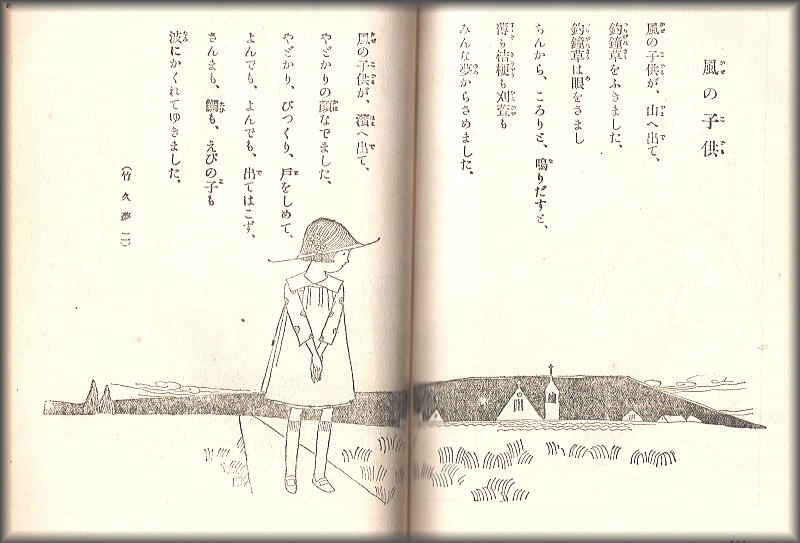 風の子供
風の子供が、山へ出て、
釣鐘草をふきました、
釣鐘草は眼をさまし
ちんから、ころりと、鳴りだすと、
薄も桔梗も刈萱も
みんな夢からさめました、
風の子供が、濱へ出て、
やどかりの顔なでました、
やどかり、びつくり、戸をしめて、
よんでも、よんでも、出てはこず、
さんまも、鯛も、えびの子も
波にかくれてゆきました、
(竹久夢二)